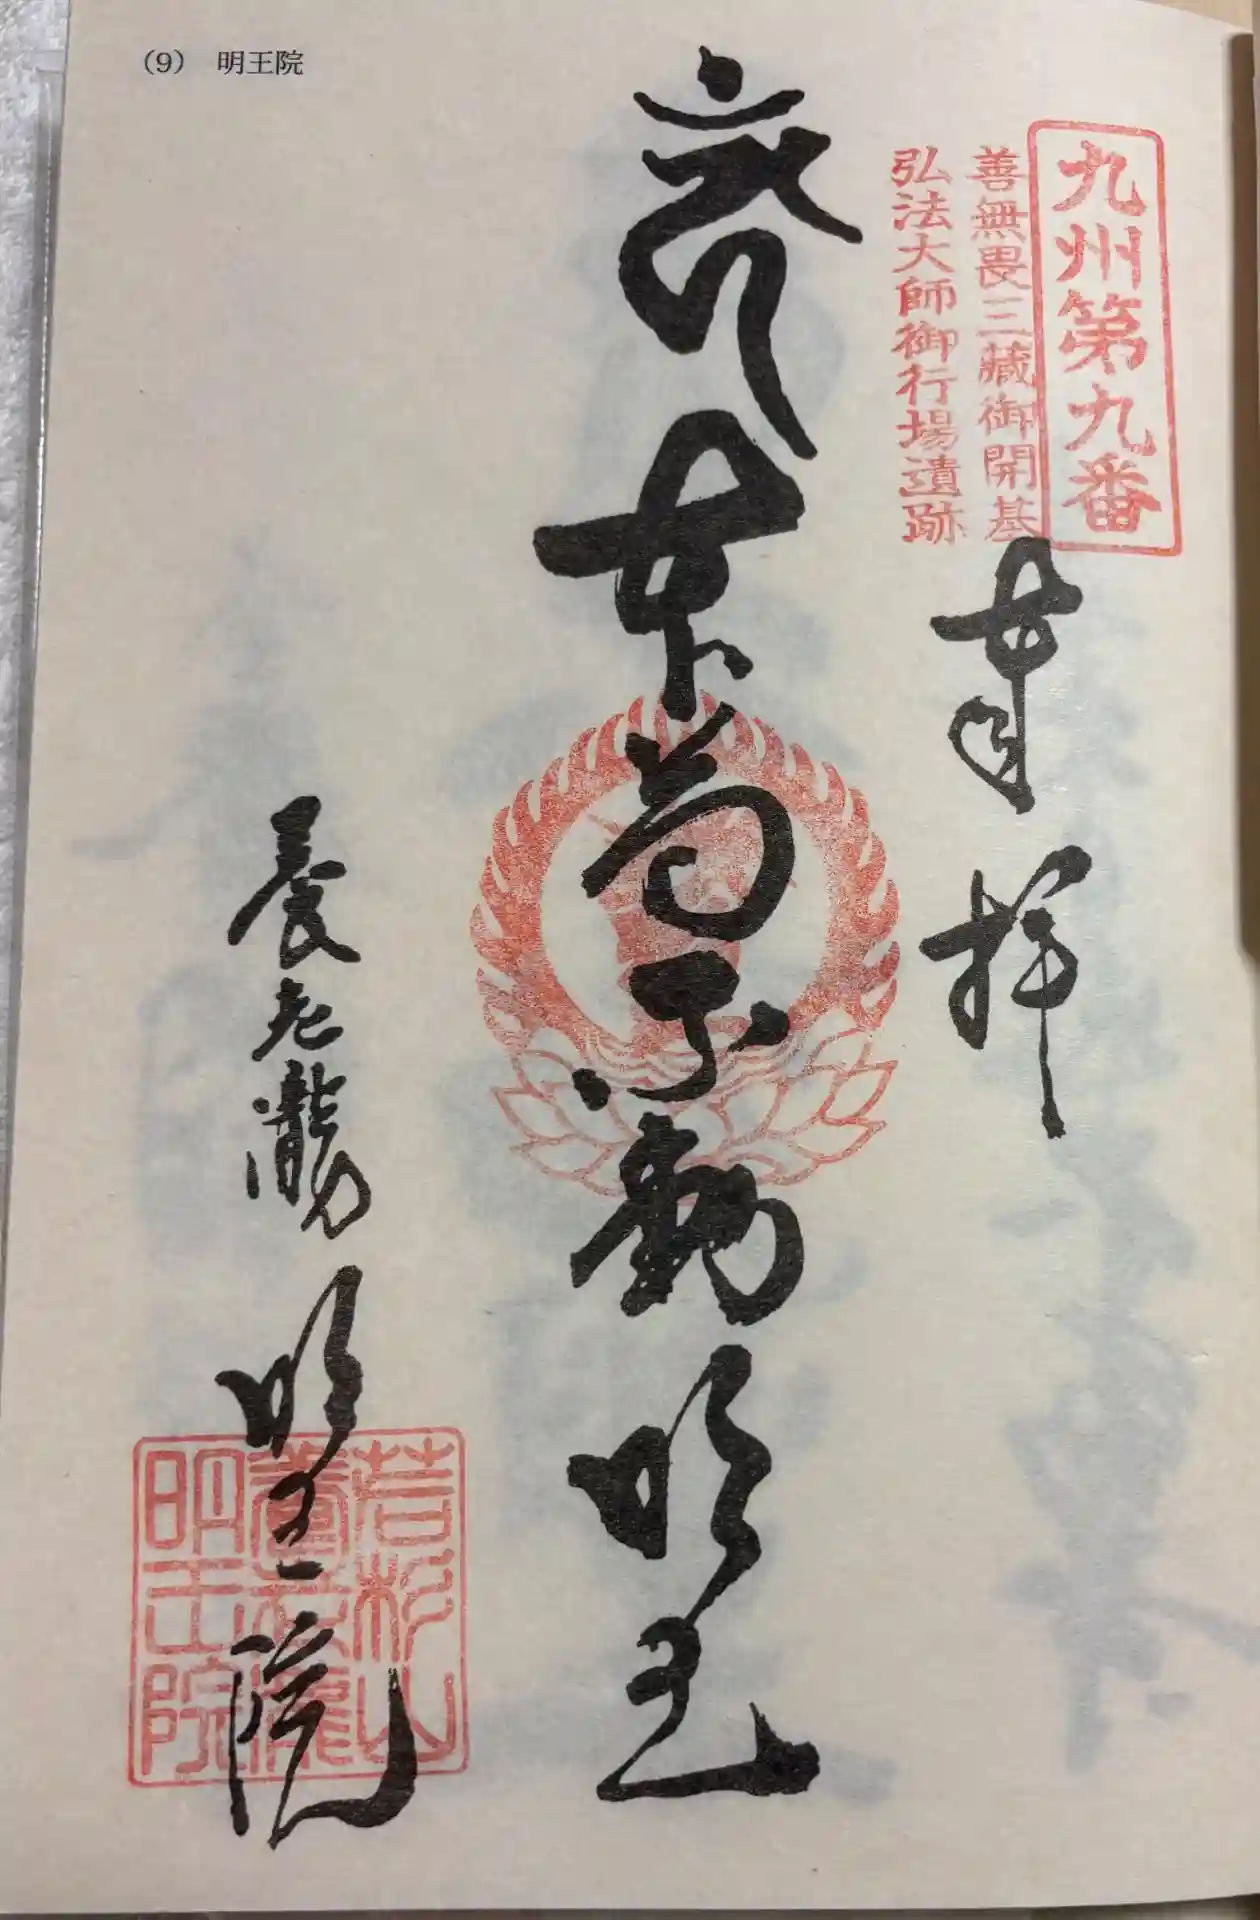 （9） 明王院
九州第九番
善無畏三藏御開基
弘法大師御行場遺跡
奉拝
本尊不動明王
養老瀧 明王院
若杉山
養老瀧
明王院